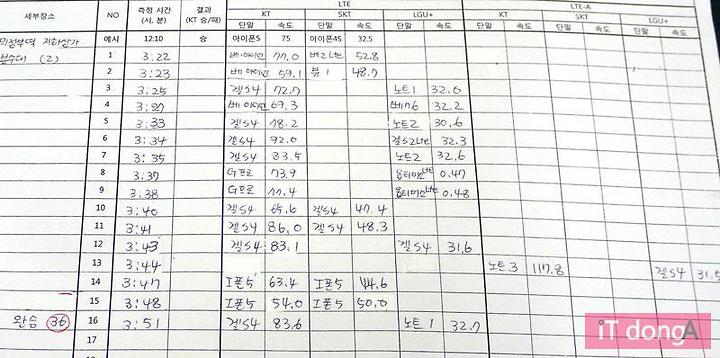 LTE LTE-A
세부장소 NO 측정 시간 (시, 분) 결과 (KT 승/패) KT SKT LGU+ KT SKT LGU+
단말 속도 단말 속도 단말 속도 단말 속도 단말 속도 단말 속도
예시 12:10 승 아이폰5 75 아이폰4S 32.5
지하상가
분수대 (2) 1 3:22 베가아이언 77.0 52.8
2 3:23 베가아이언 59.1 뷰1 48.7
3 3:25 갤S4 72.7 노트1 32.0
4 3:27 베가아이언 69.3 베가6 32.2
5 3:33 갤S4 78.2 노트2 30.6
6 3:34 갤S4 92.0 갤S2Lte 32.3
7 3:35 갤S4 83.5 노트2 32.6
8 3:37 G프로 73.9 옵티머스Lte 0.47
9 3:38 G프로 77.4 옵티머스Lte 0.48
10 3:40 갤S4 65.6 갤S4 47.4
11 3:41 갤S4 86.0 갤S4 48.3
12 3:43 갤S4 83.1 갤S4 31.6
13 3:44 노트3 117.8 갤S4
14 3:47 I폰5 63.4 I폰5 44.6
15 3:48 I폰5 54.0 I폰5 50.0
완승 36 16 3:51 갤S4 83.6 노트1 32.7
17
iT dongA